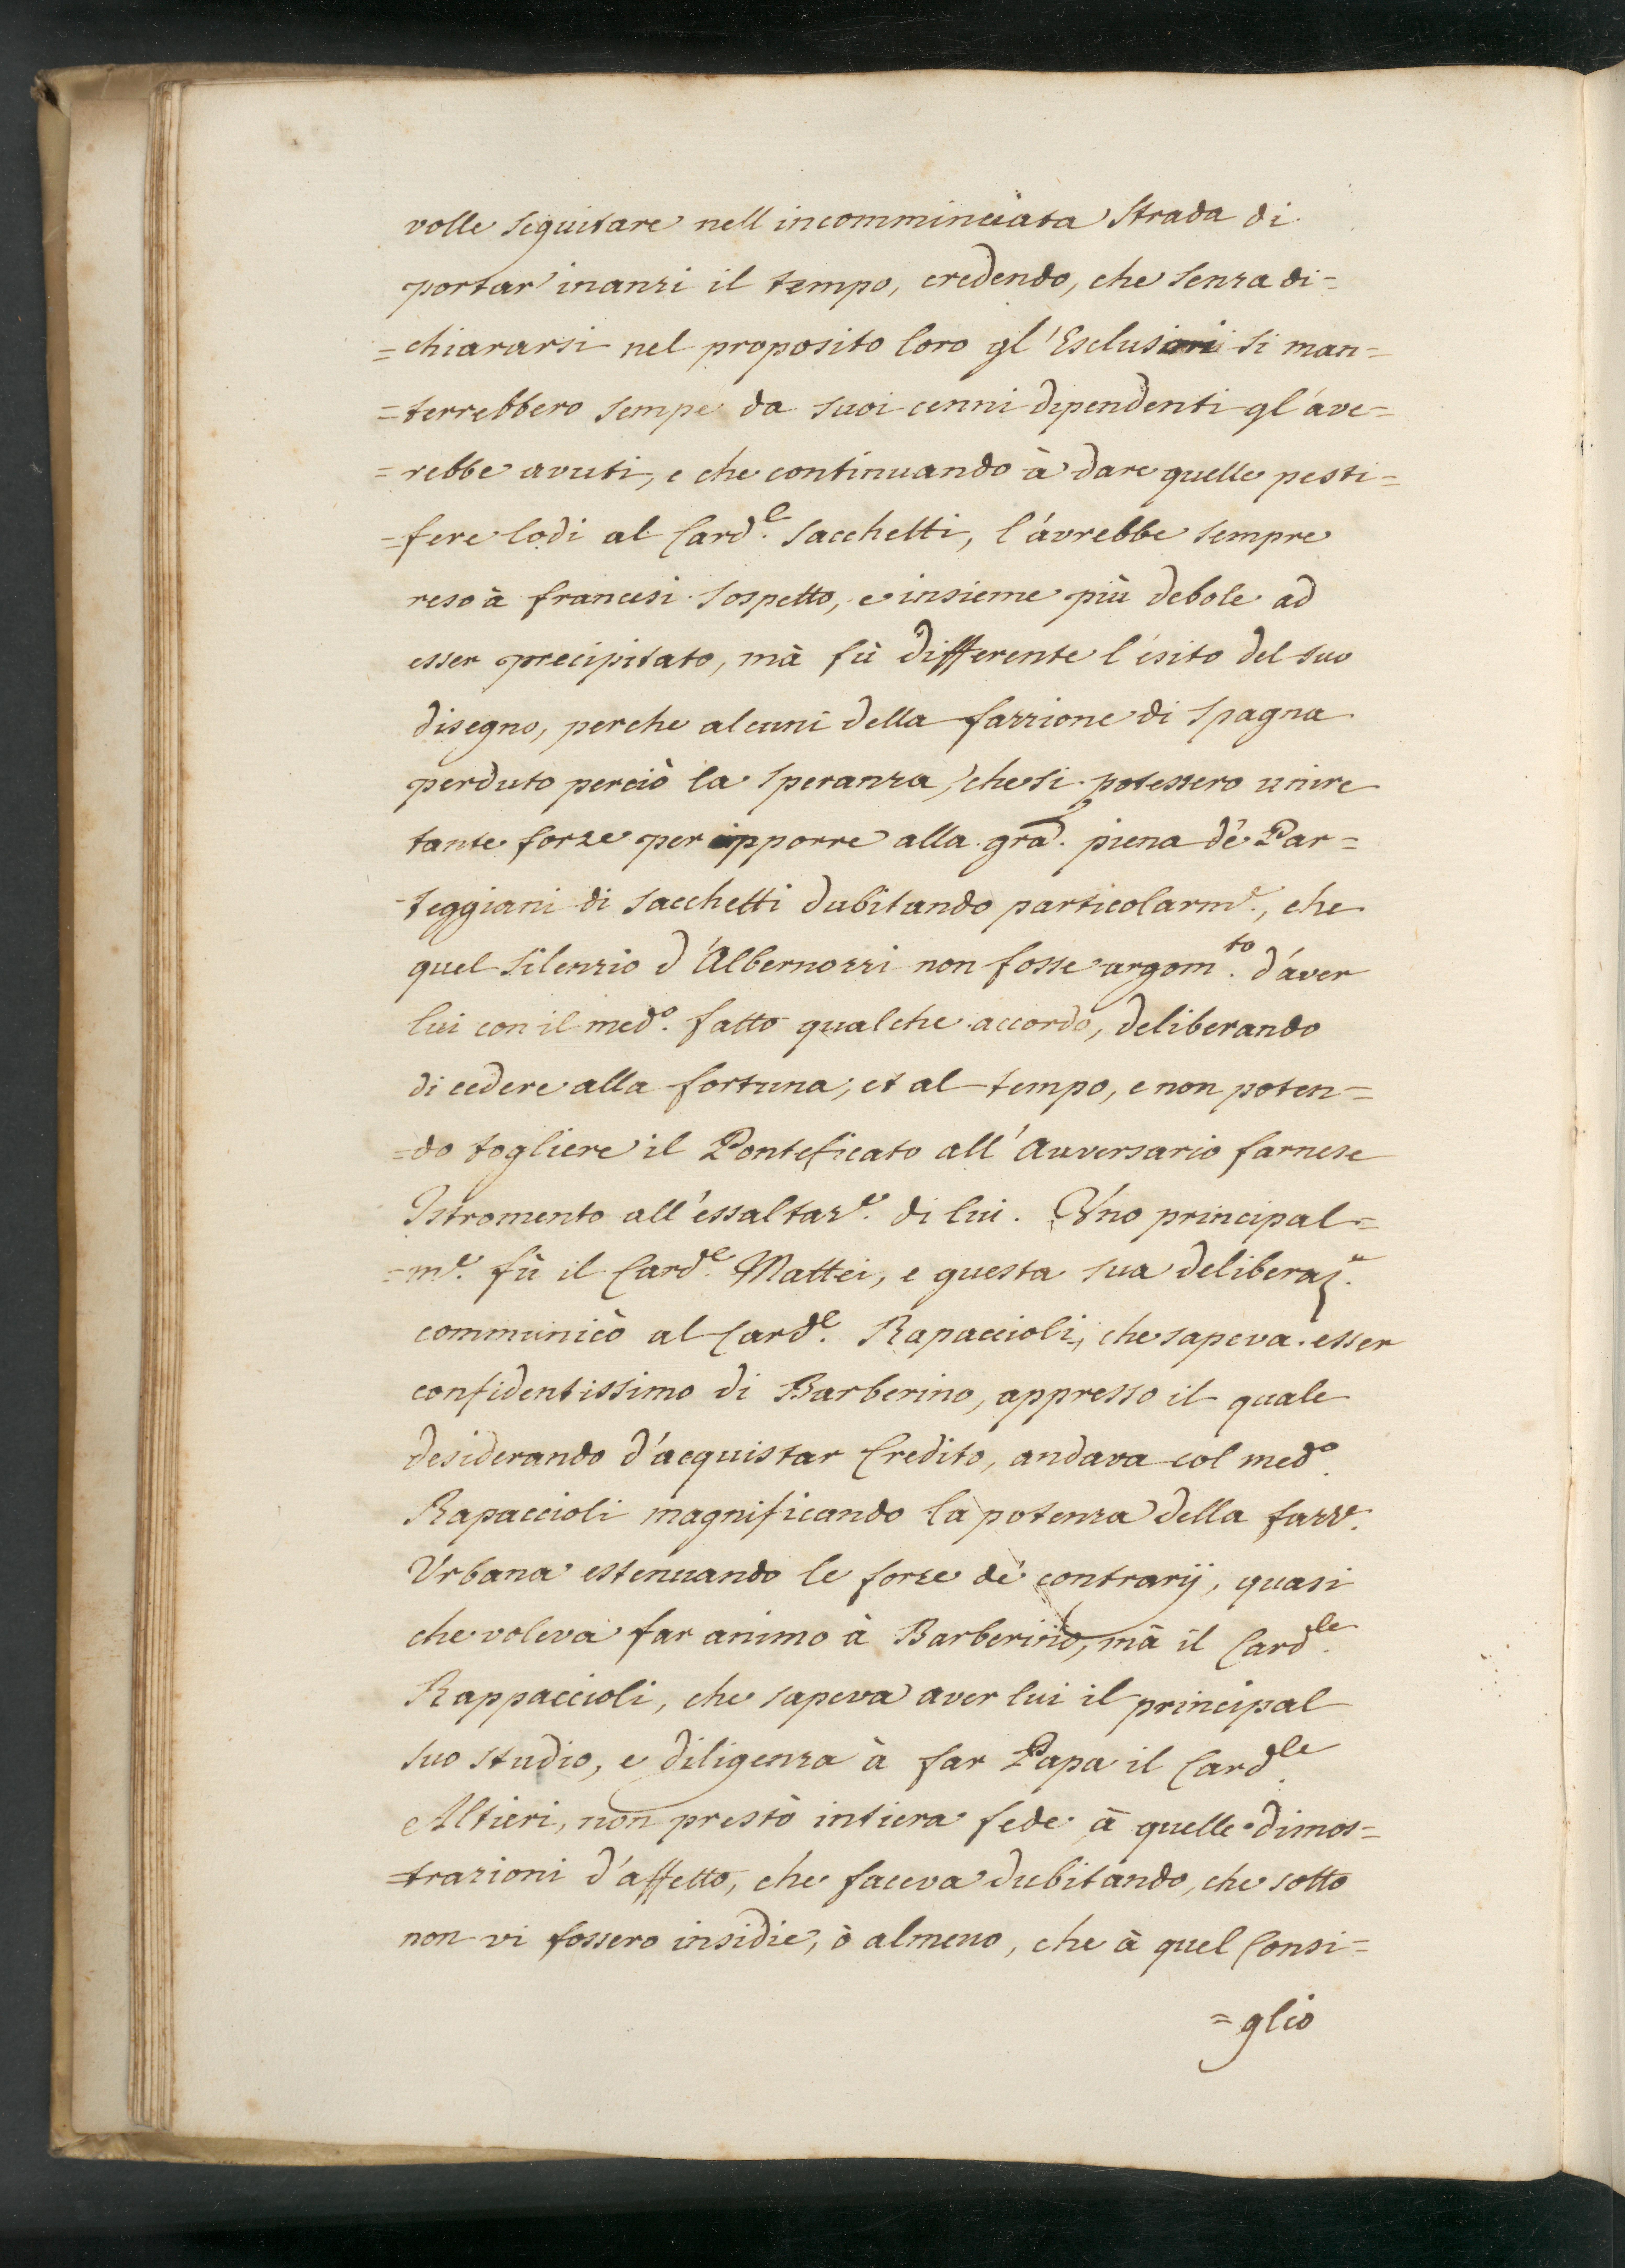 volle seguitare nell incomminciata Strada di
portar' inanzi il tempo, credendo, che senza di=
=chiararsi nel proposito loro gl'Esclusori si man=
=terrebbero sempe da suoi cenni dipendenti gl'ave=
=rebbe avuti, e che continuando à dare quelle pesti=
=fere lodi al Card.e Sacchetti, l'avrebbe sempre
reso à francesi sospetto, e insieme più debole ad
esser precipitato, mà fù differente l'esito del suo
disegno, perche alcuni della fazzione di Spagna
perduto perciò la speranza, che si potessero unire
tante forze per opporre alla gra. piena dè Par=
-teggiani di Sacchetti dubitando particolarm.e, che
quel silenzio d'Albernozzi non fosse argom.to d'aver
lui con il med.o fatto qualche accordo, deliberando
di cedere alla fortuna, et al tempo, e non poten=
=do togliere il Ponteficato all'Auversario farnese
Istromento all'essaltaz.e di lui. Uno principal=
=m.e fù il Card.e Mattei, e questa sua deliberaz.e
communicò al Card.e Rapaccioli, che sapeva esser
confidentissimo di Barberino, appresso il quale
desiderando d'acquistar Credito, andava col med.o
Rapaccioli magnificando la potenza della fazz.e
Urbana estenuando le forze de' contrarij, quasi
che voleva far animo à Barberino, mà il Card.le
Rappaccioli, che sapeva aver lui il principal
suo studio, e diligenza à far Papa il Card.le
Altieri, non prestò intiera fede à quelle dimos=
=trazioni d'affetto, che faceva dubitando, che sotto
non vi fossero insidie, ò almeno, che à quel Consi=
=glio